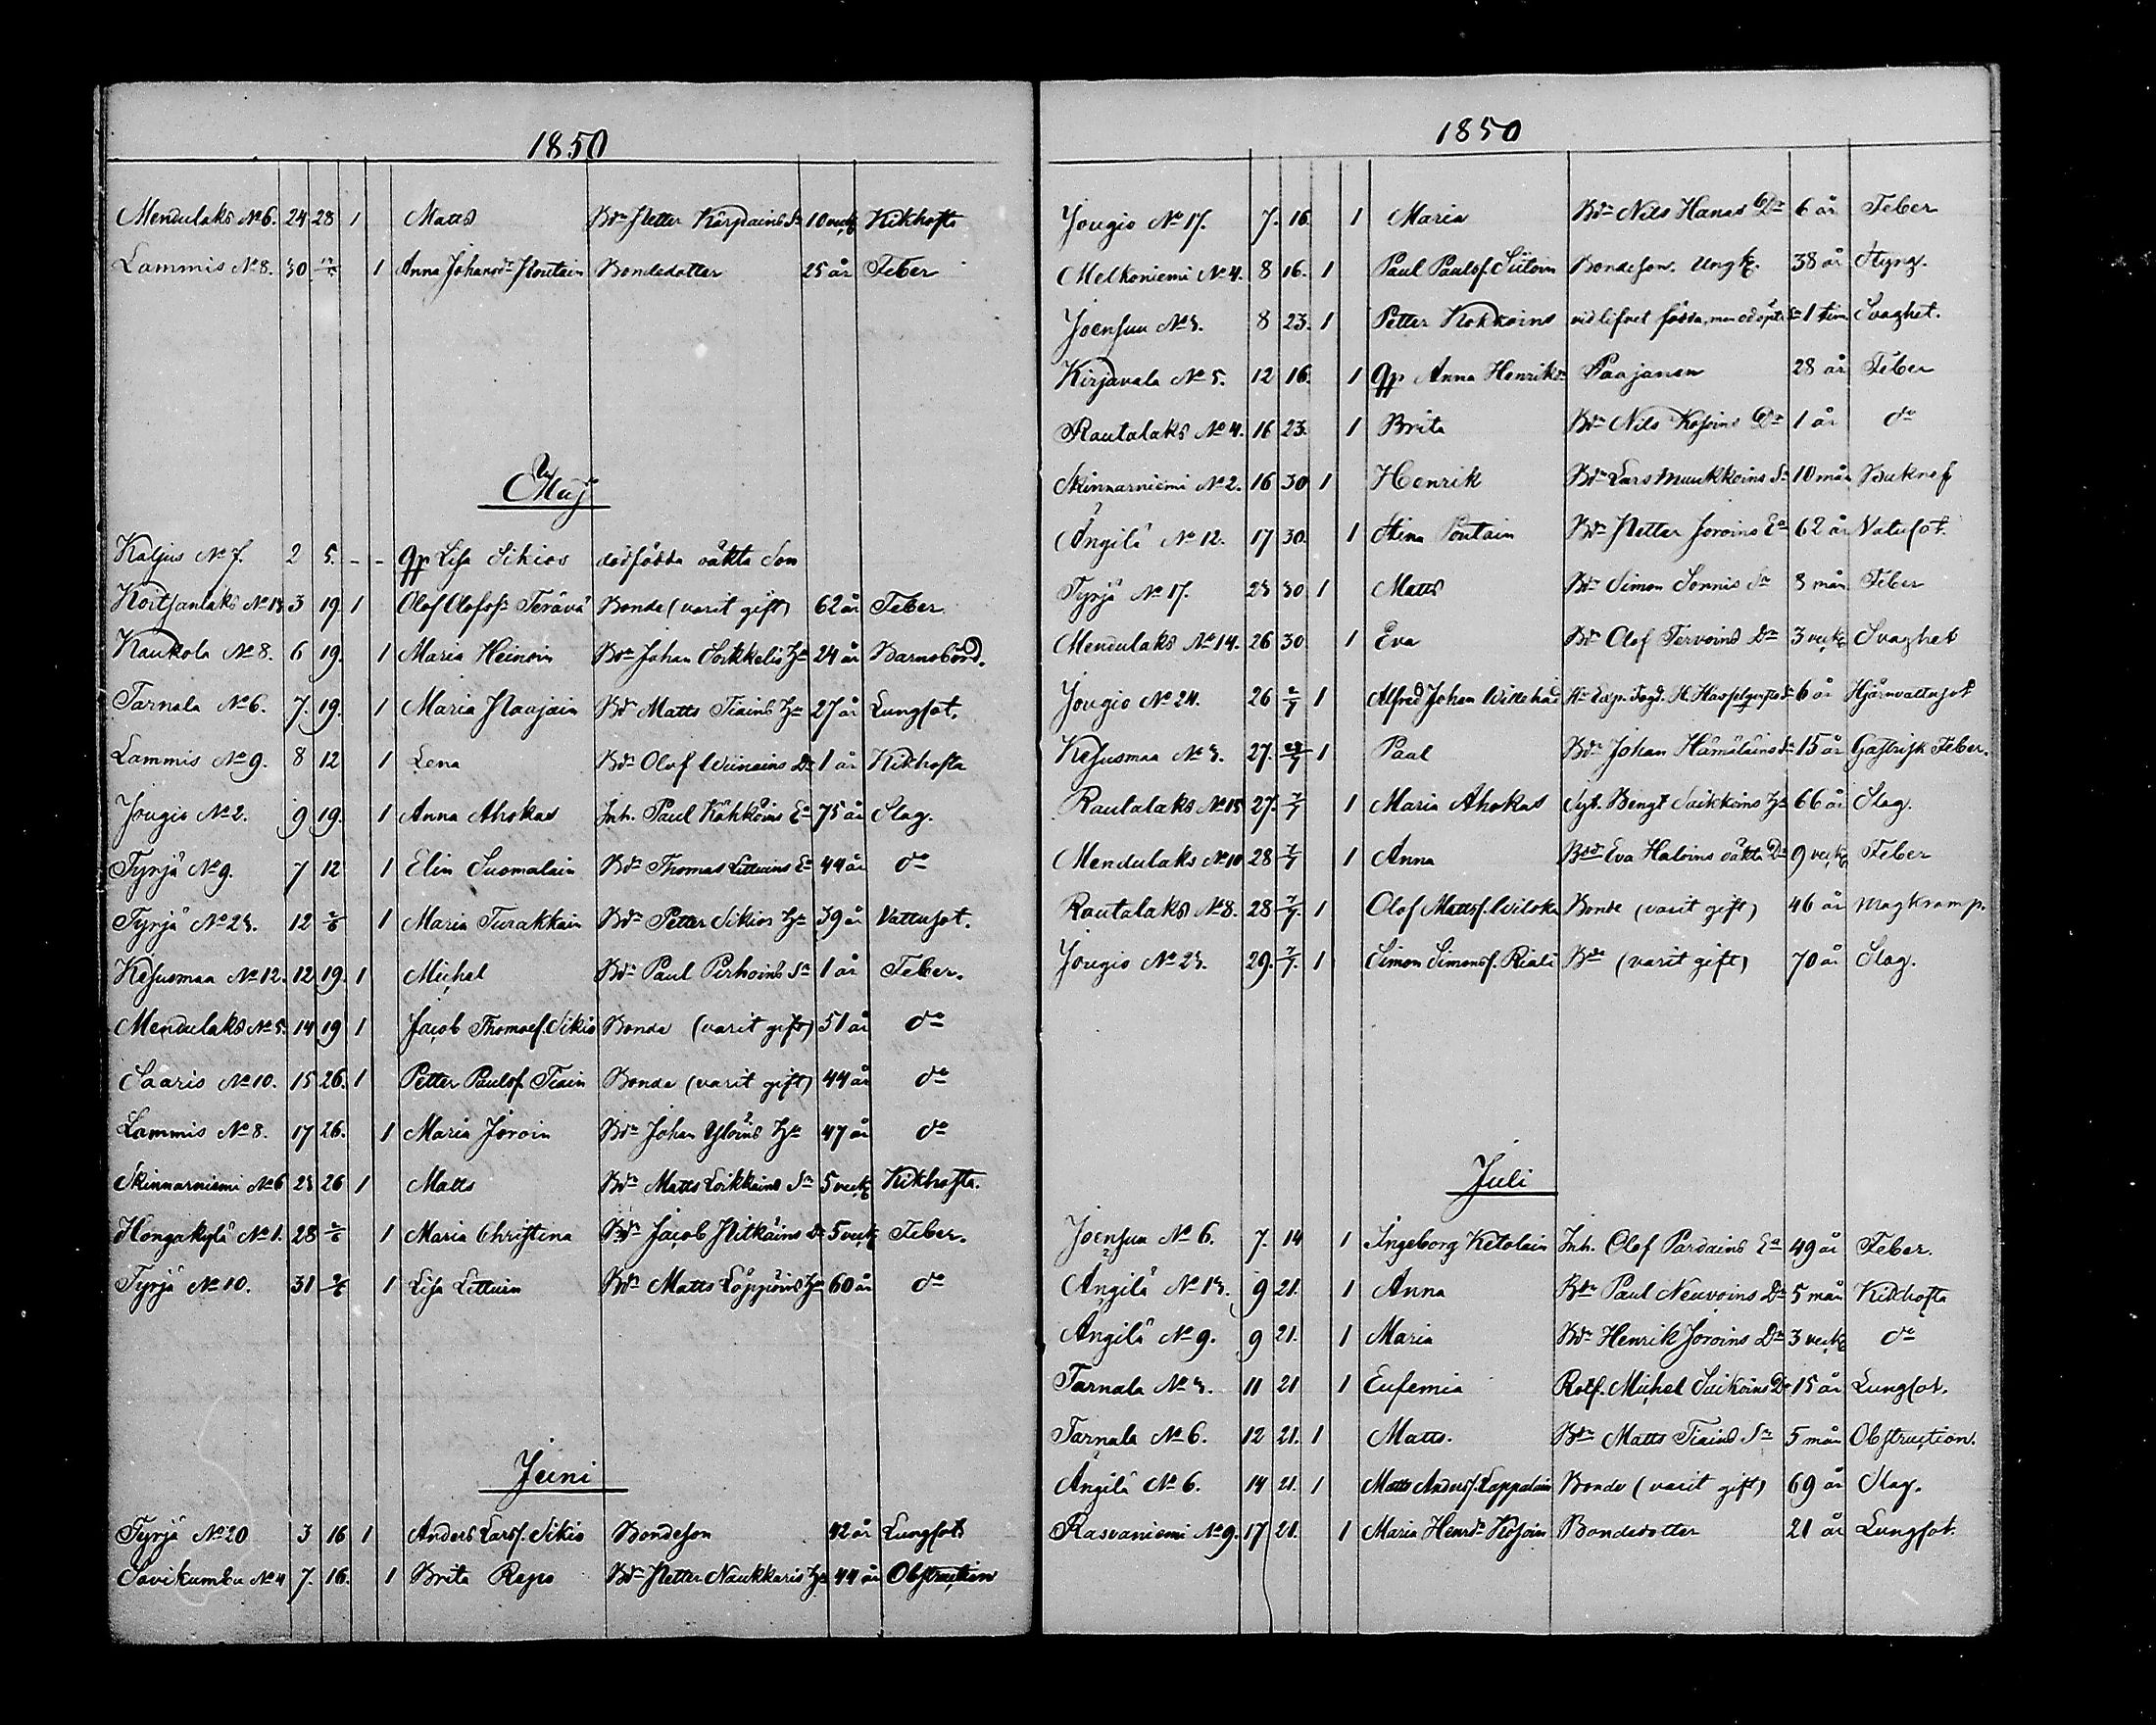 1850
Mendulaks No 6. 24 28 1 Matts Bdn Petter Kärpäins Sn 10 veck Kikhosta
Lammis No 8. 30 1 Anna Johansdr Poutain Bondedotter 25 år Feber
Maj
Kaljus No 7. 2 5. - - qp Lisa Sikios dödfödda oäkta Son
Koitsanlaks No 13 3 19. 1 Olof Olofss Terävä Bonde (varit gift) 62 år Feber
Kaukola No 8. 6 19. 1 Maria Heinoin Bdn Johan Sorkkelis Ha 24 år Barnsbörd.
Tarnala No 6. 7. 19. 1 Maria Paajain Bdn Matts Tiains Ha 27 år Lungsot.
Lammis No 9. 8 12 1 Lena Bdn Olof Weinains Dr 1 år Kikhosta
Jougio No 2. 9 19. 1 Anna Ahokas Inh. Paul Kähköins Ea 75 år Slag.
Tyrjä No 9. 7 12 1 Elin Suomalain Bdn Thomas Littuins Ea 44 år do
Tyrjä No 23. 12 2/6 1 Maria Turakkain Bdn Petter Sikios Ha 39 år Vattusot.
Kesusmaa No 12. 12 19. 1 Michel Bdn Paul Pirhoins Sn 1 år Feber.
Mendulaks No 5. 14 19 1 Jacob Thomasf. Sikio Bonde (varit gift) 51 år do
Saaris No 10. 15 26. 1 Petter Paulsf. Tiain Bonde (varit gift) 44 år do
Lammis No 8. 17 26. 1 Maria Joroin Bdn Johan Yloins Ha 47 år do
Skinnarniemi No 6 23 26 1 Matts Bdn Matts Loikkains Sn 5 veck Kikhosta.
Hongakylä No 1. 28 2/6 1 Maria Christina Bdn Jacob Pitkäins Dr 5 veck Feber.
Tyrjä No 10. 31 2/6 1 Lisa Littuin Bdn Matts Löppöins Ha 60 år do
Juni
Tyrjä No 20 3 16 1 Anders Larsf. Sikio Bondeson 42 år Lungsot
Savikumbu No 4 7. 16. 1 Brita Repo Bdn Petter Naukkaris Ha 44 år Obstruction
1850
Jougio No 17. 7. 16. 1 Maria Bdn Nils Hanas Dr 6 år Feber
Melkoniemi No 4. 8 16. 1 Paul Paulsf. Siitoin Bondeson. Ungk. 38 år Styng.
Joensuu No 3. 8 23. 1 Petter Kokkoins vid lifvet födda, men odöpte Sn 1 tim Svaghet.
Kirjavala No 5. 12 16. 1 qp Anna Henriksdr Paajanen 28 år Feber
Rautalaks No 4. 16 23. 1 Brita Bdn Nils Kosoins Dr 1 år do
Skinnarniemi No 2. 16 30 1 Henrik Bdn Lars Muukkoins Sn 10 mån Bukref
Ängilä No 12. 17 30. 1 Stina Poutain Bdn Petter Joroins Ea 62 år Vatusot.
Tyrjä No 17. 23 30 1 Matts Bdn Simon Sonnis Sn 8 mån Feber
Mendulaks No 14. 26 30 1 Eva Bdn Olof Tervoins Dr 3 veck Svaghet
Jougio No 24. 26 2/7 1 Alfred Johan Willehad 6 år Hjärnvattusot
Kesusmaa No 3. 27. 1 Paul Bdn Johan Hämäläins Sn 15 år Gastrisk Feber.
Rautalaks No 15 27. 7/7 1 Maria Ahokas Syt. Bengt Saikkoins Ha 66 år Slag.
Mendulaks No 10 28 7/7 1 Anna Bdr Eva Haloins oäkta Dr 9 veck Feber
Rautalaks No 8. 28 7/7 1 Olof Mattsf. Wiloka Bonde (varit gift) 46 år Magkramp.
Jougio No 23. 29. 7/7. 1 Simon Simonsf. Riali Bde (varit gift) 70 år Slag.
Juli
Joensuu No 6. 7. 14 1 Ingeborg Ketolain Inh. Olof Pardains Ea 49 år Feber.
Ängilä No 13. 9 21. 1 Anna Bdn Paul Neuvoins Dr 5 mån Kikhosta
Ängilä No 9. 9 21. 1 Maria Bdn Henrik Joroins Dr 3 veck do
Tarnala No 3. 11 21 1 Eufemia Rotf. Michel Saikoins Dr 15 år Lungsot.
Tarnala No 6. 12 21. 1 Matts. Bdn Matts Tiains Sn 5 mån Obstruction.
Ängilä No 6. 14 21. 1 Matts Andersf. Lappalain Bonde (varit gift) 69 år Slag.
Rasvaniemi No 9. 17 21. 1 Maria Henrdr Kosoin Bondedotter 21 år Lungsot.